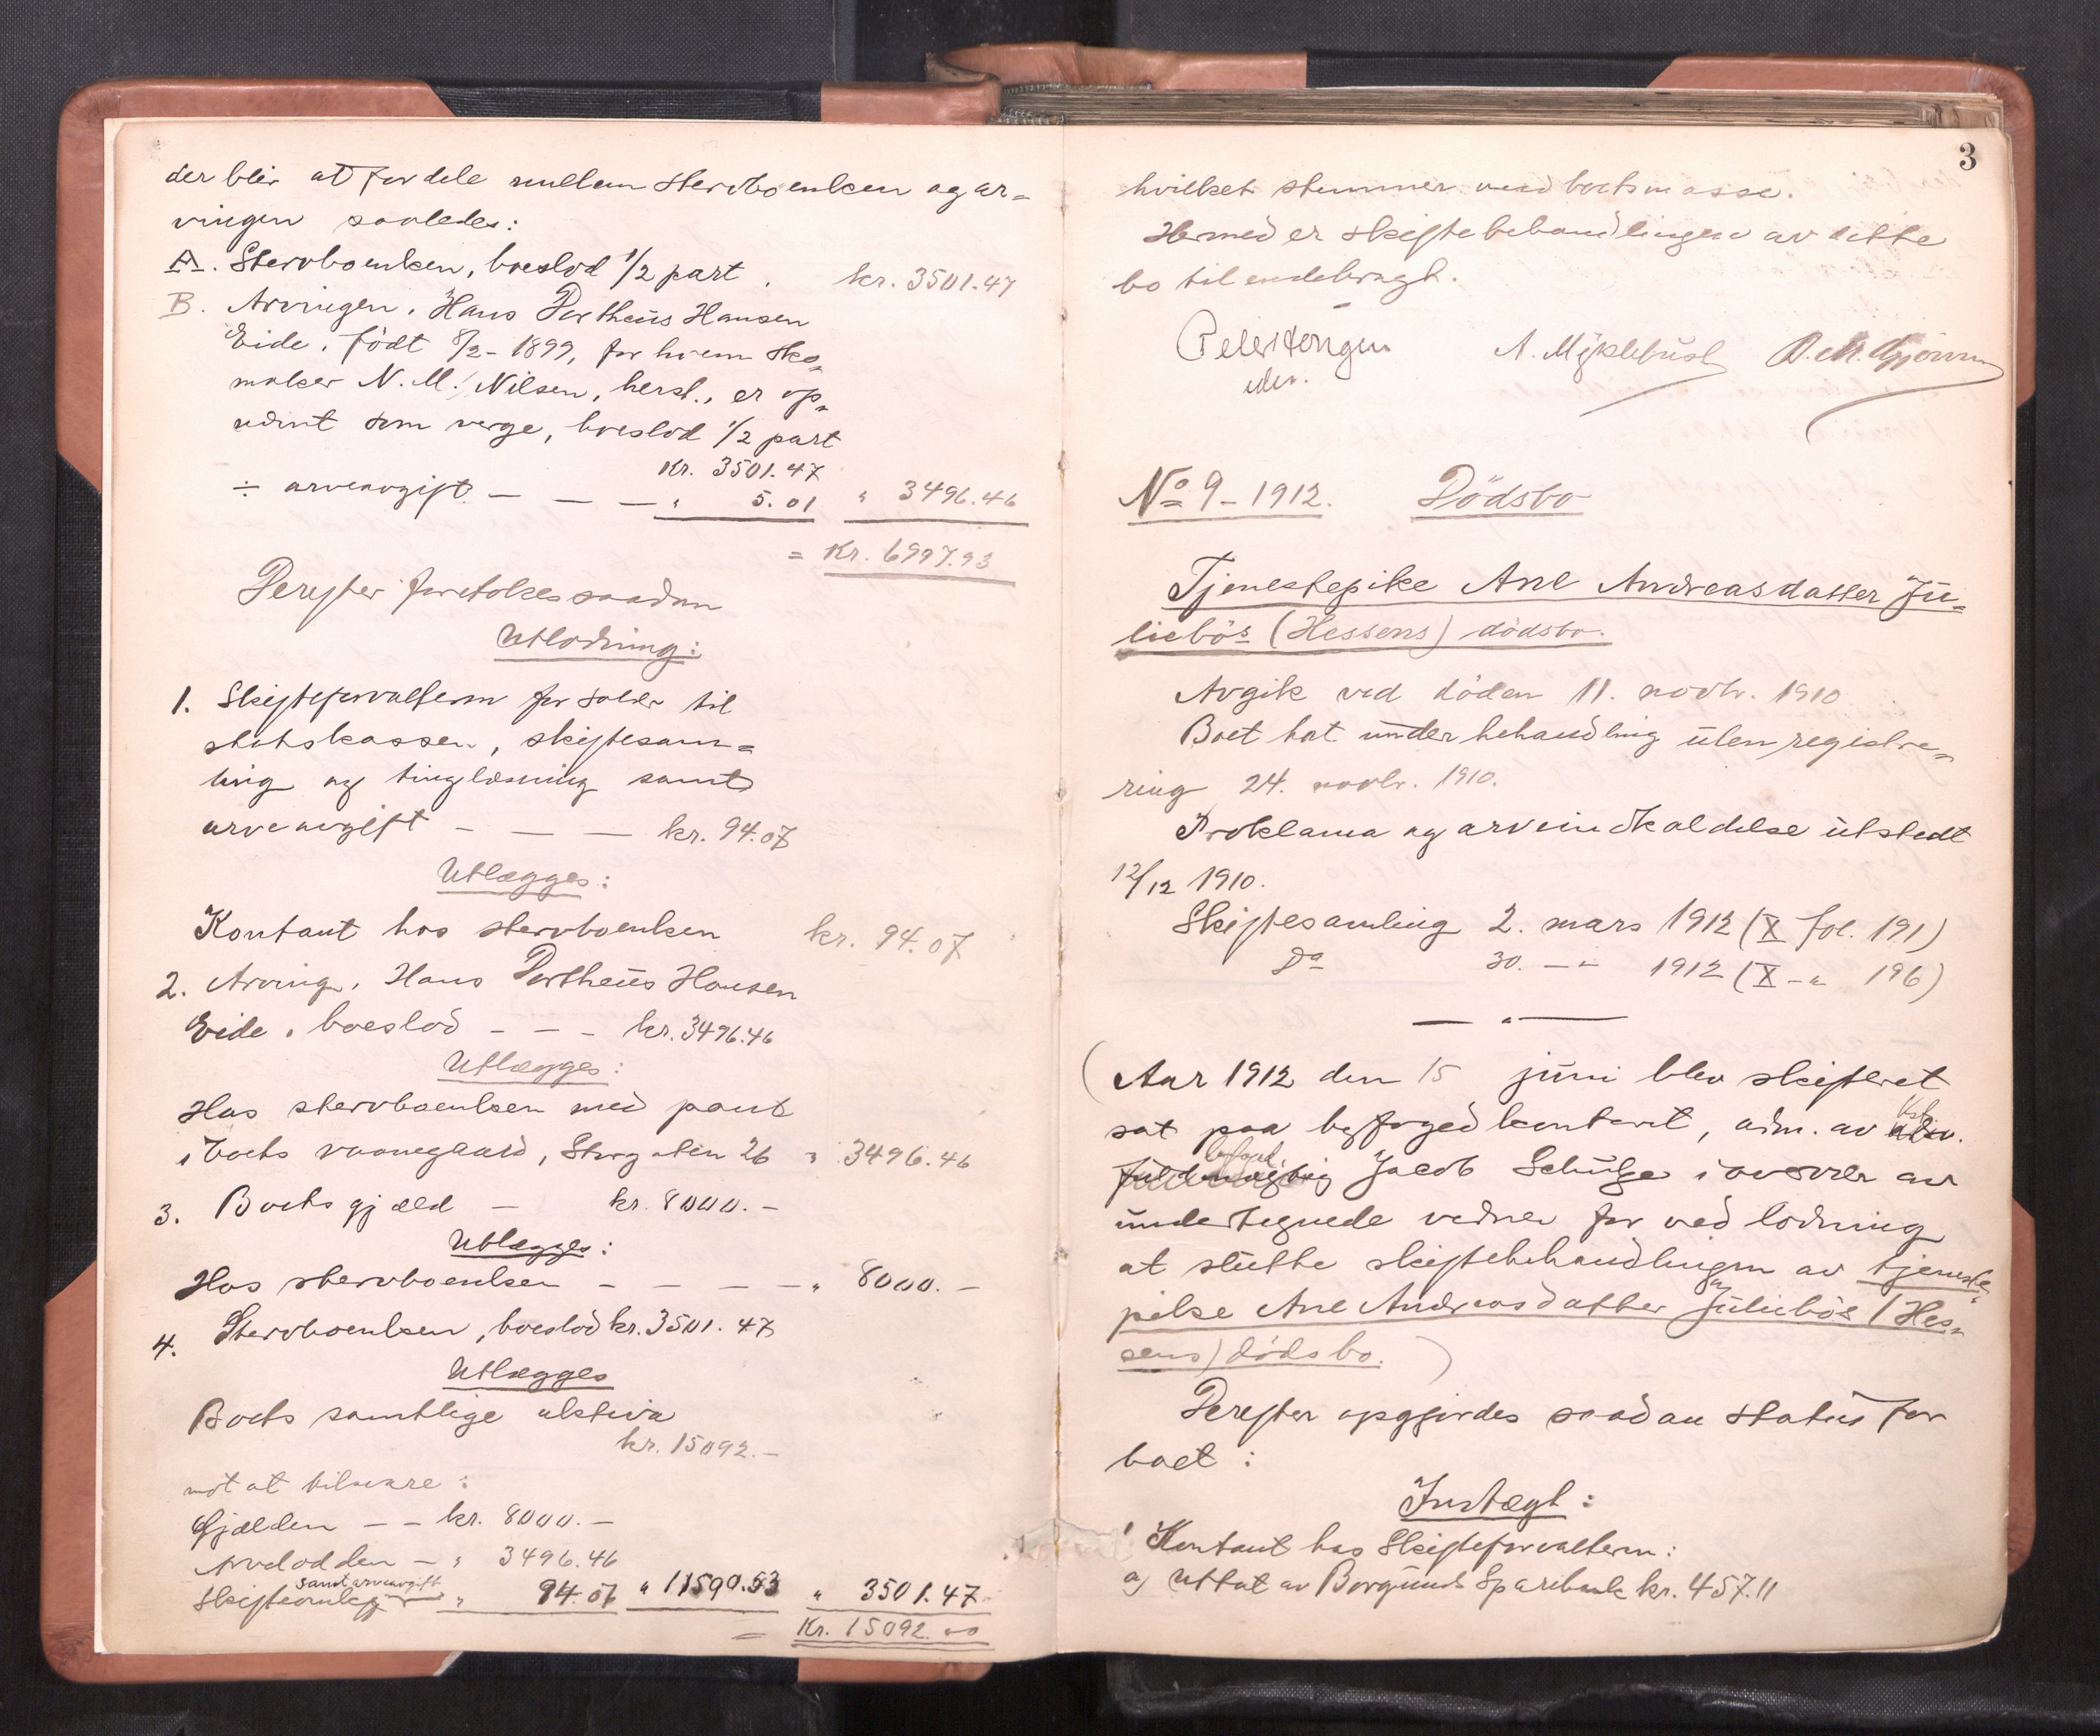 der blir at fordele mellem stervboenken og ar=
vingen saaledes:
A. Stervboenken, boeslod 1/2 part . kr. 3501.47
B. Arvingen, Hans Dortheus Hansen
Eide, född 8/2 - 1899, for hvem sko=
maker N. M. Nilsen, herst., er op=
nævnt som verge, boeslod 1/2 part
kr. 3501.47
÷ arveavgift — — — " 5.01 " 3496.46
= Kr. 6997.93
Derefter foretokes saadan
Utlodning:
1. Skifteforvalteren for salær til
statskassen, skiftesam=
ling og tinglæsning samt
arveavgift — — — kr. 94.07
Utlægges:
Kontant hos stervboenken kr. 94.07
2. Arving, Hans Dortheus Hansen
Eide, boeslod - - - kr. 3496.46
Utlægges:
Hos stervboenken med pant
i boets vaanegaard, Storgaten 26 " 3496.46
3. Boets gjæld — kr. 8000.-
Utlægges:
Hos stervboenken — — — — " 8000.-
4. Stervboenken, boeslod kr. 3501.47
Utlægges
Boets samtlige aktiva
kr. 15092.-
mot at tilsvare:
Gjælden — — kr. 8000.-
Arvelodden — " 3496.46
samt arveavgift
Skifteomkostn. " 94.07 " 11590.53 " 3501.47
= Kr. 15092.00
3
hvilket stemmer med boets masse.
Hermed er skiftebehandlingen av dette
bo tilendebragt.
A. Myklebust
No 9 - 1912. Dödsbo
Tjenestepike Ane Andreasdatter Ju=
liebös (Hessens) dödsbo.
Avgik ved döden 11. novbr. 1910
Boet tat under behandling uten registre=
ring 24. novbr. 1910.
Proklama og arveindkaldelse utstedt
12/12 1910.
Skiftesamling 2. mars 1912 (X fol. 191)
Do 30. — " 1912 (X - " 196)
— " —
(Aar 1912 den 15 juni blev skifteret
sat paa byfogedkontoret, adm. av
Jacob Schulze i overvær av
undertegnede vidner for ved lodning
at slutte skiftebehandlingen av tjeneste=
pike Ane Andreasdatter Juliebös (Hes=
sens) dödsbo. )
Derefter opgjordes saadan status for
boet:
Indtægt:
1 Kontant hos Skifteforvalteren:
a) Uttat av Borgunds Sparebank kr. 457.11